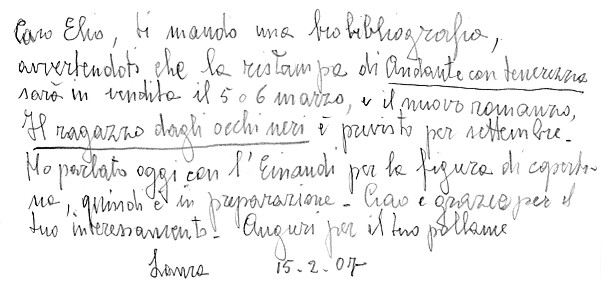 Caro Elio, ti mando una biobibliografia,
avvertendoti che la ristampa di Andante con tenerezza
sarà in vendita il 5 o 6 marzo, e il nuovo romanzo,
Il ragazzo dagli occhi neri è previsto per settembre.
Ho parlato oggi con l'Einaudi per la figura di coperti-
na, quindi è in preparazione - Ciao e grazie per il
tuo interessamento - Auguri per il tuo pollame
Laura 15-2-07